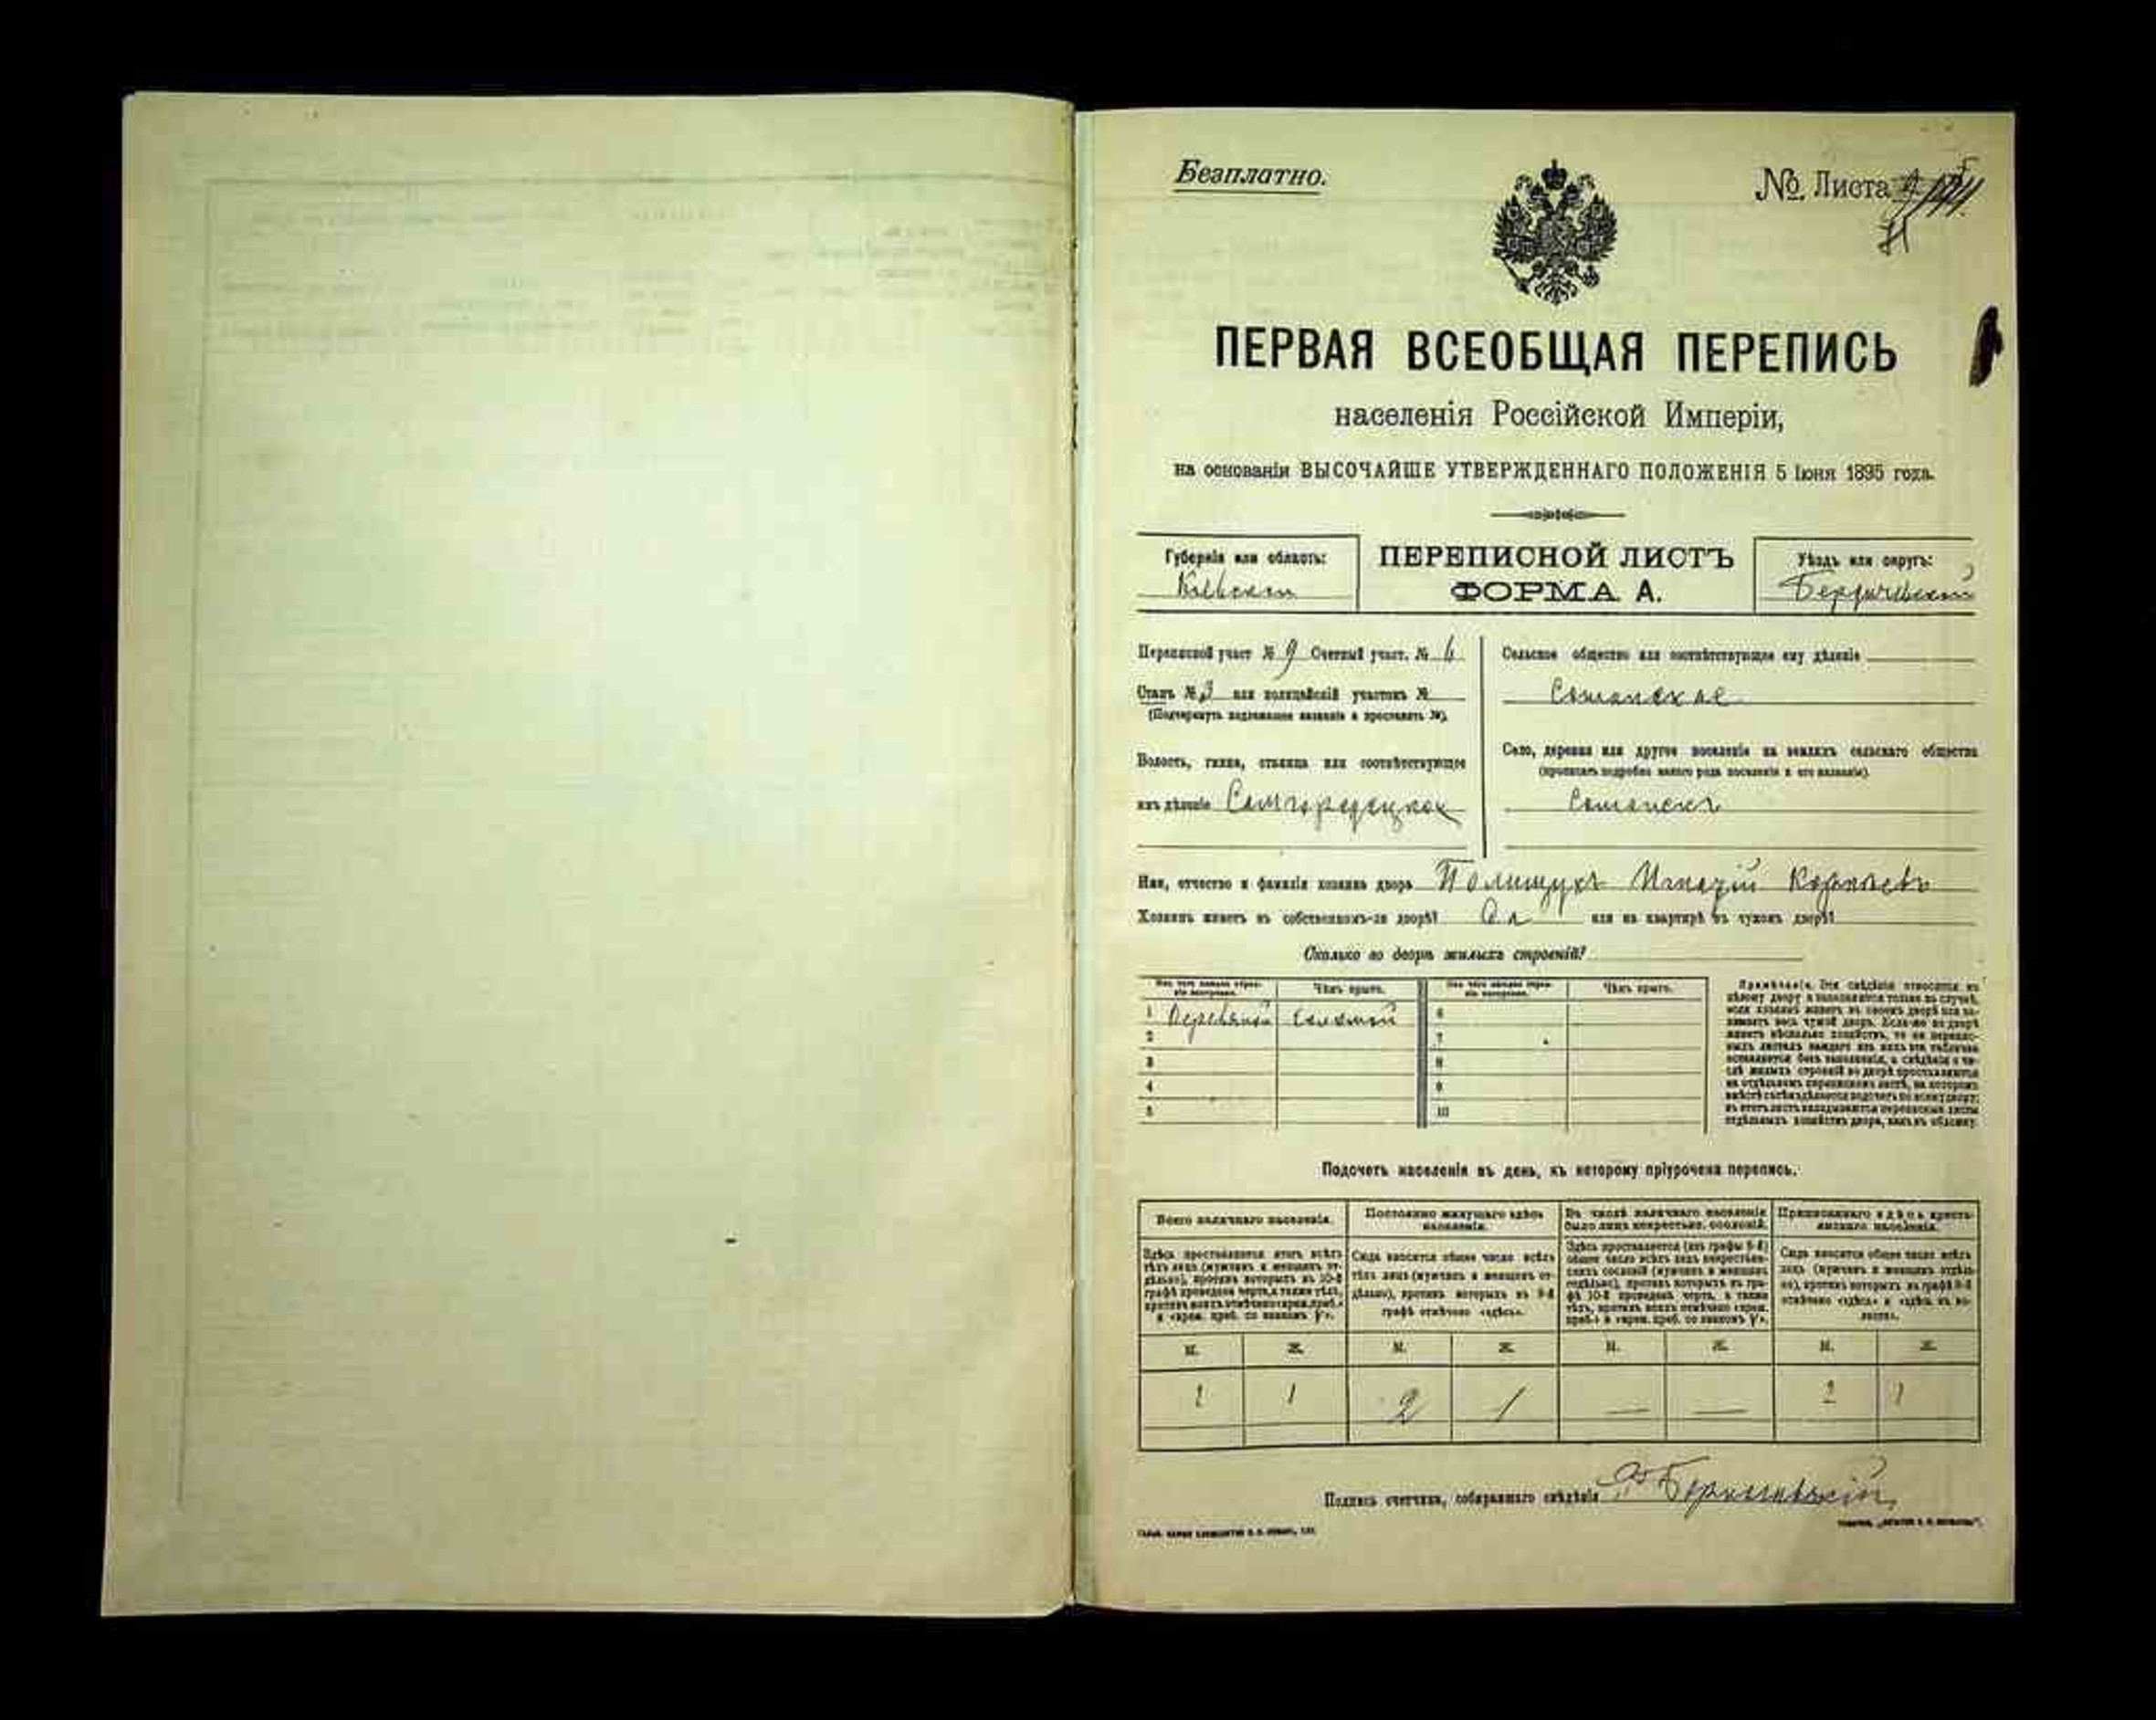 Безплатно.
№ Листа
ПЕРВАЯ ВСЕОБЩАЯ ПЕРЕПИСЬ
населенія Россійской Имперіи,
на основаніи ВЫСОЧАЙШЕ УТВЕРЖДЕННАГО ПОЛОЖЕНІЯ 5 Іюня 1895 года.
Губернія или область:
ПЕРЕПИСНОЙ ЛИСТЪ
ФОРМА А.
Уѣздъ или округъ:
Бердичевскій
Переписной участ. № 9 Счетный участ. № 6
Станъ № 3 или полицейскій участокъ №
(Подчеркнуть подлежащее названіе и проставить №).
Волость, гмина, станица или соотвѣтствующее
имъ дѣленіе Самгородецкая
Сельское общество или соотвѣтствующее ему дѣленіе
Село, деревня или другое поселеніе на земляхъ сельскаго общества
(прописать подробно какого рода поселеніе и его названіе).
Имя, отчество и фамилія хозяина двора Полищукъ Игнатій
Хозяинъ живетъ въ собственномъ-ли дворѣ? Да или на квартирѣ въ чужомъ дворѣ?
Сколько во дворѣ жилыхъ строеній?
Изъ чего каждое строеніе построено. Чѣмъ крыто. Изъ чего каждое строеніе построено. Чѣмъ крыто.
1 Деревяной Соломой 6
2 7
3 8
4 9
5 10
Примѣчаніе. Эти свѣдѣнія относятся къ
цѣлому двору и заполняются только въ случаѣ,
если хозяинъ живетъ въ своемъ дворѣ или за-
нимаетъ весь чужой дворъ. Если-же во дворѣ
живетъ нѣсколько хозяйствъ, то на перепис-
ныхъ листахъ каждаго изъ нихъ эта таблица
оставляется безъ заполненія, а свѣдѣнія о чи-
слѣ жилыхъ строеній во дворѣ проставляются
на отдѣльномъ переписномъ листѣ, на которомъ
вмѣстѣ съ тѣмъ дѣлается подсчетъ по всему двору;
въ этотъ листъ вкладываются переписные листы
отдѣльныхъ хозяйствъ двора, какъ въ обложку.
Подсчетъ населенія въ день, къ которому пріурочена перепись.
Всего наличнаго населенія. Постоянно живущаго здѣсь населенія. Въ числѣ наличнаго населенія было лицъ некрестьянс. сословій. Приписаннаго здѣсь крестьянскаго населенія.
Здѣсь проставляется итогъ всѣхъ
тѣхъ лицъ (мужчинъ и женщинъ от-
дѣльно), противъ которыхъ въ 10-й
графѣ проведена черта, а также тѣхъ,
противъ коихъ отмѣчено «врем. преб.»
Сюда вносится общее число всѣхъ
тѣхъ лицъ (мужчинъ и женщинъ от-
дѣльно), противъ которыхъ въ 9-й
графѣ отмѣчено «здѣсь».
Здѣсь проставляется (изъ графы 6-й)
общее число всѣхъ лицъ некрестьян-
скихъ сословій (мужчинъ и женщинъ
отдѣльно), противъ которыхъ въ гра-
фѣ 10-й проведена черта, а также
тѣхъ, противъ коихъ отмѣчено «врем.
Сюда вносится общее число всѣхъ
лицъ (мужчинъ и женщинъ отдѣль-
но), противъ которыхъ въ графѣ 8-й
отмѣчено «здѣсь» и «здѣсь въ во-
лости».
М. Ж. М. Ж. М. Ж. М. Ж.
2 1 2 1 — — 2 1
Подпись счетчика, собиравшаго свѣдѣнія